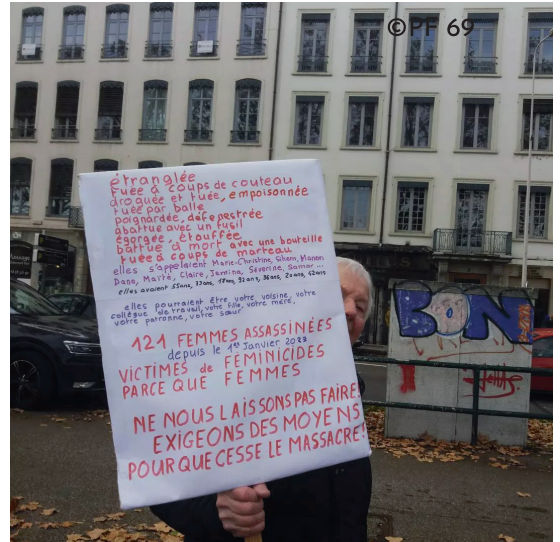 ©PF 69
étranglée
tuée à coups de couteau
droguée et tuée, empoisonnée
tuée par balle
poignardée, défenestrée
abattue avec un fusil
égorgée, étouffée
battue à mort avec une bouteille
tuée à coups de marteau
elles s'appelaient Marie-Christine, Sihem, Manon
Dana, Marté, Claire, Jemina, Séverine, Samar...
elles avaient 55ans, 33ans, 18ans, 92ans, 36ans, 20ans, 62ans
elles pourraient être votre voisine, votre
collègue de travail, votre fille, votre mère,
votre patronne, votre sœur.
121 FEMMES ASSASSINÉES
depuis le 1er Janvier
VICTIMES de FEMINICIDES
PARCE QUE FEMMES
NE NOUS LAISSONS PAS FAIRE!
EXIGEONS DES MOYENS
POUR QUE CESSE LE MASSACRE!
BON